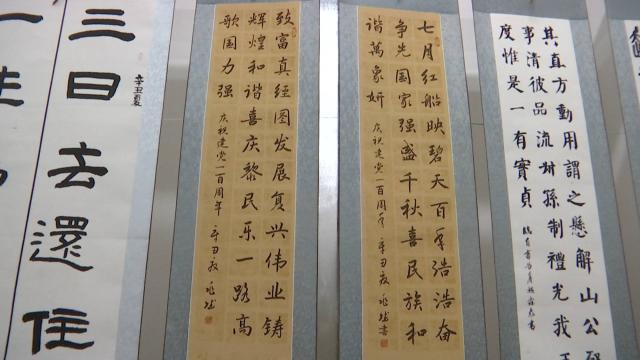 其直方動用謂之懸解山公
事清彼品流州孫制禮光我王
度惟是一有實貞
七月红船映碧天百年浩浩奋
争先国家强盛千秋喜民族和
谐万象妍
庆祝建党一百周年辛丑夏
致富真经图发展复兴伟业铸
辉煌和谐喜庆黎民乐一路高
歌国力强
庆祝建党一百周年辛丑夏
三日去還住
辛丑夏
一